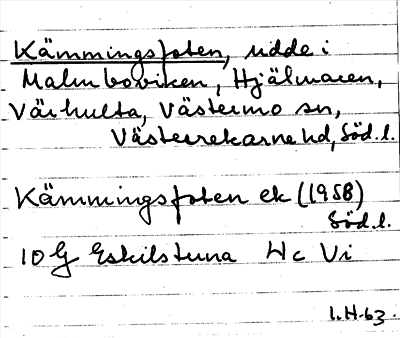 Kämmingsfoten, udde i
Malmboviken, Hjälmaren,
Värhulta, Västermo sn,
Västerrekarne hd, Söd.l.
Kämmingsfoten ek (1958)
Söd.l.
10 G Eskilstuna Hc Vi
1.H.63.